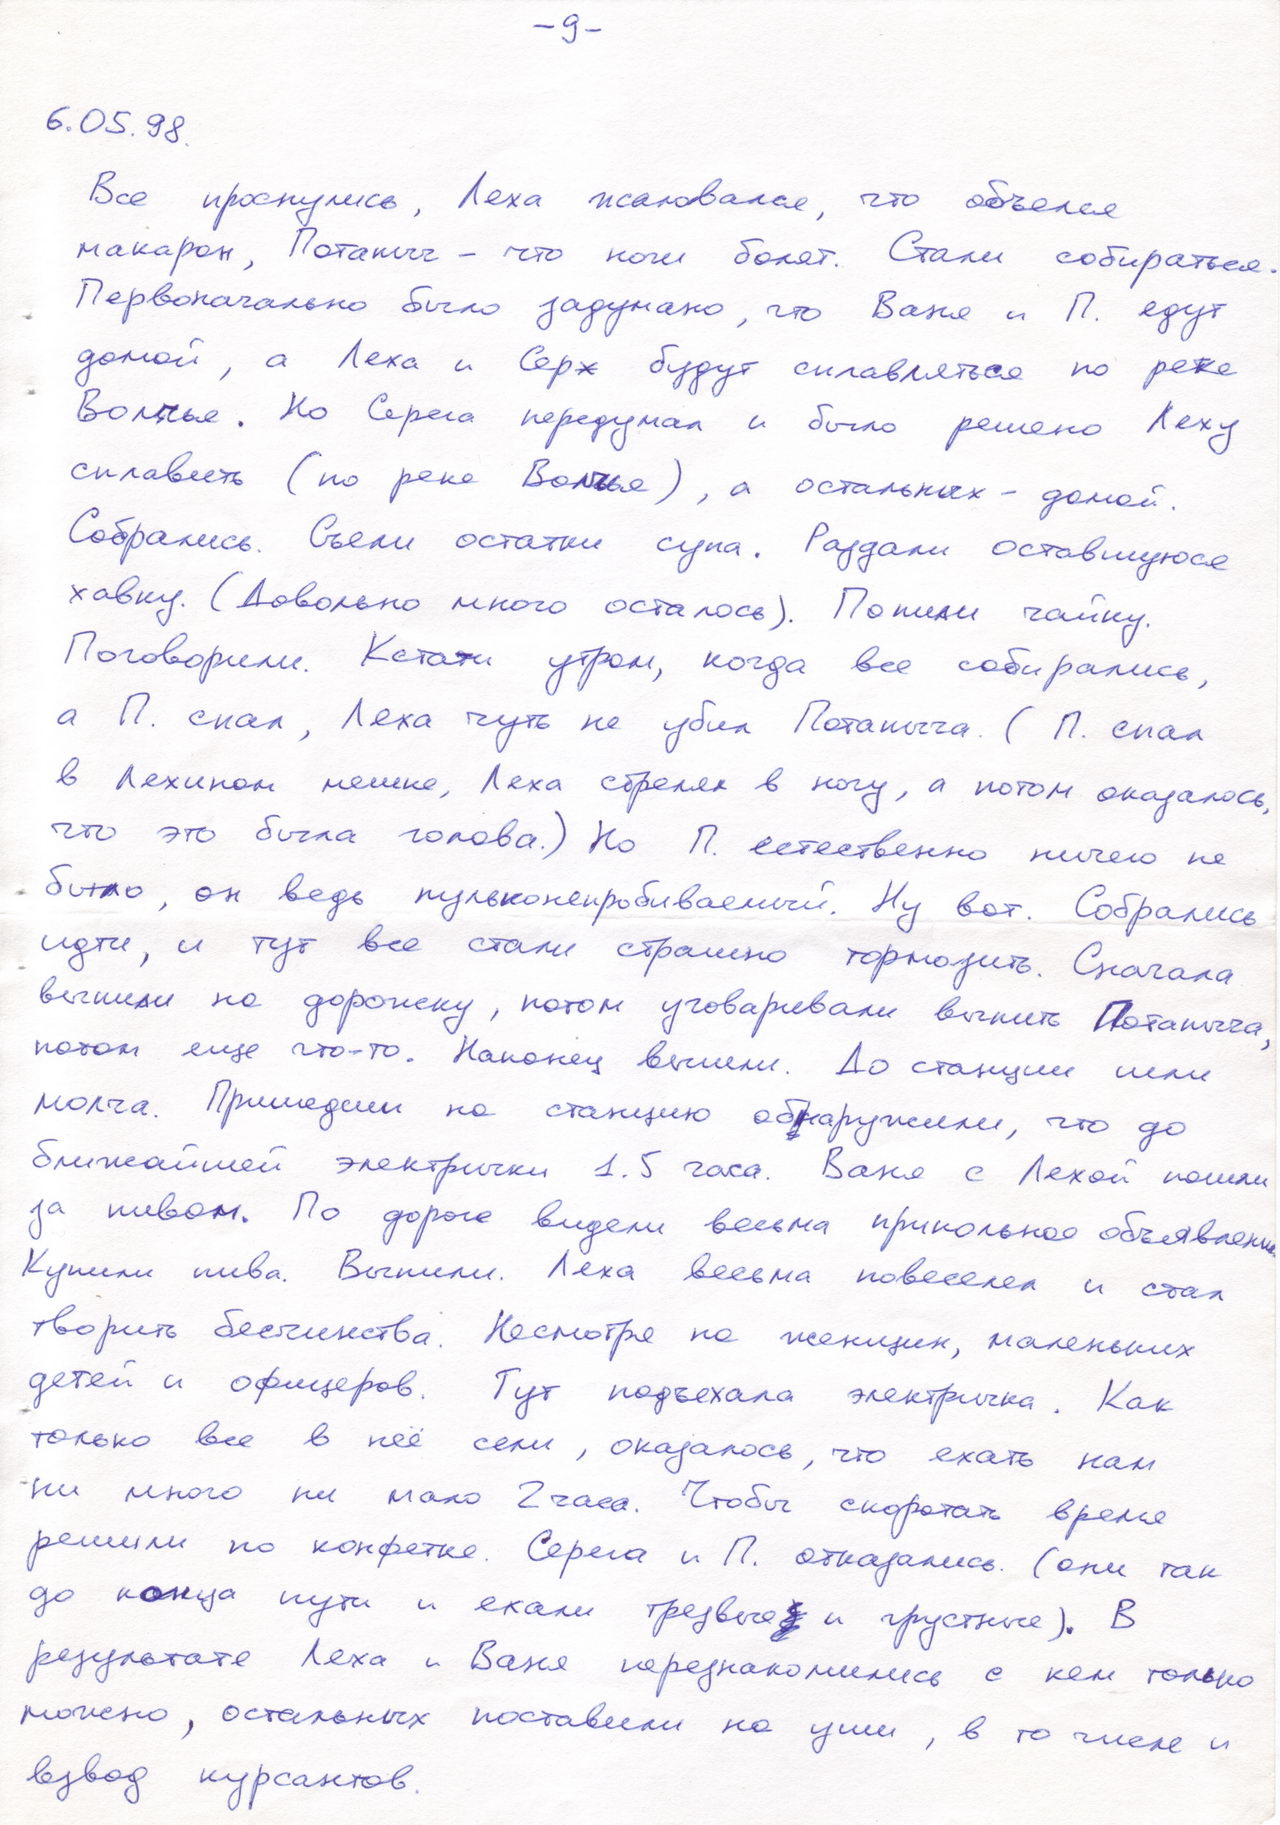 -9-
6.05.98.
Все проснулись, Леха жаловался, что объелся
макарон, Потапыч - что ноги болят. Стали собираться.
Первоначально было задумано, что Ваня и П. едут
домой, а Леха и Серж будут сплавляться по реке
Волчья. Но Серега передумал и было решено Леху
сплавить (по реке Волчья), а остальных - домой.
Собрались. Съели остатки супа. Раздали оставшуюся
хавку. (Довольно много осталось). Попили чайку.
Поговорили. Кстати утром, когда все собирались,
а П. спал, Леха чуть не убил Потапыча. (П. спал
в Лехином мешке, Леха стрелял в ногу, а потом оказалось,
что это была голова.) Но П. естественно ничего не
было, он ведь пульконепробиваемый. Ну вот. Собрались
идти, и тут все стали страшно тормозить. Сначала
выпили на дорожку, потом уговаривали выпить Потапыча,
потом еще что-то. Наконец вышли. До станции шли
молча. Пришедши на станцию обнаружили, что до
ближайшей электрички 1.5 часа. Ваня с Лехой пошли
за пивом. По дороге видели весьма прикольное объявление.
Купили пива. Выпили. Леха весьма повеселел и стал
творить бесчинства. Несмотря на женщин, маленьких
детей и офицеров. Тут подъехала электричка. Как
только все в неё сели, оказалось, что ехать нам
ни много ни мало 2 часа. Чтобы скоротать время
решили по конфетке. Серега и П. отказались. (они так
до конца пути и ехали трезвые и грустные). В
результате Леха и Ваня перезнакомились с кем только
можно, остальных поставили на уши, в то числе и
взвод курсантов.